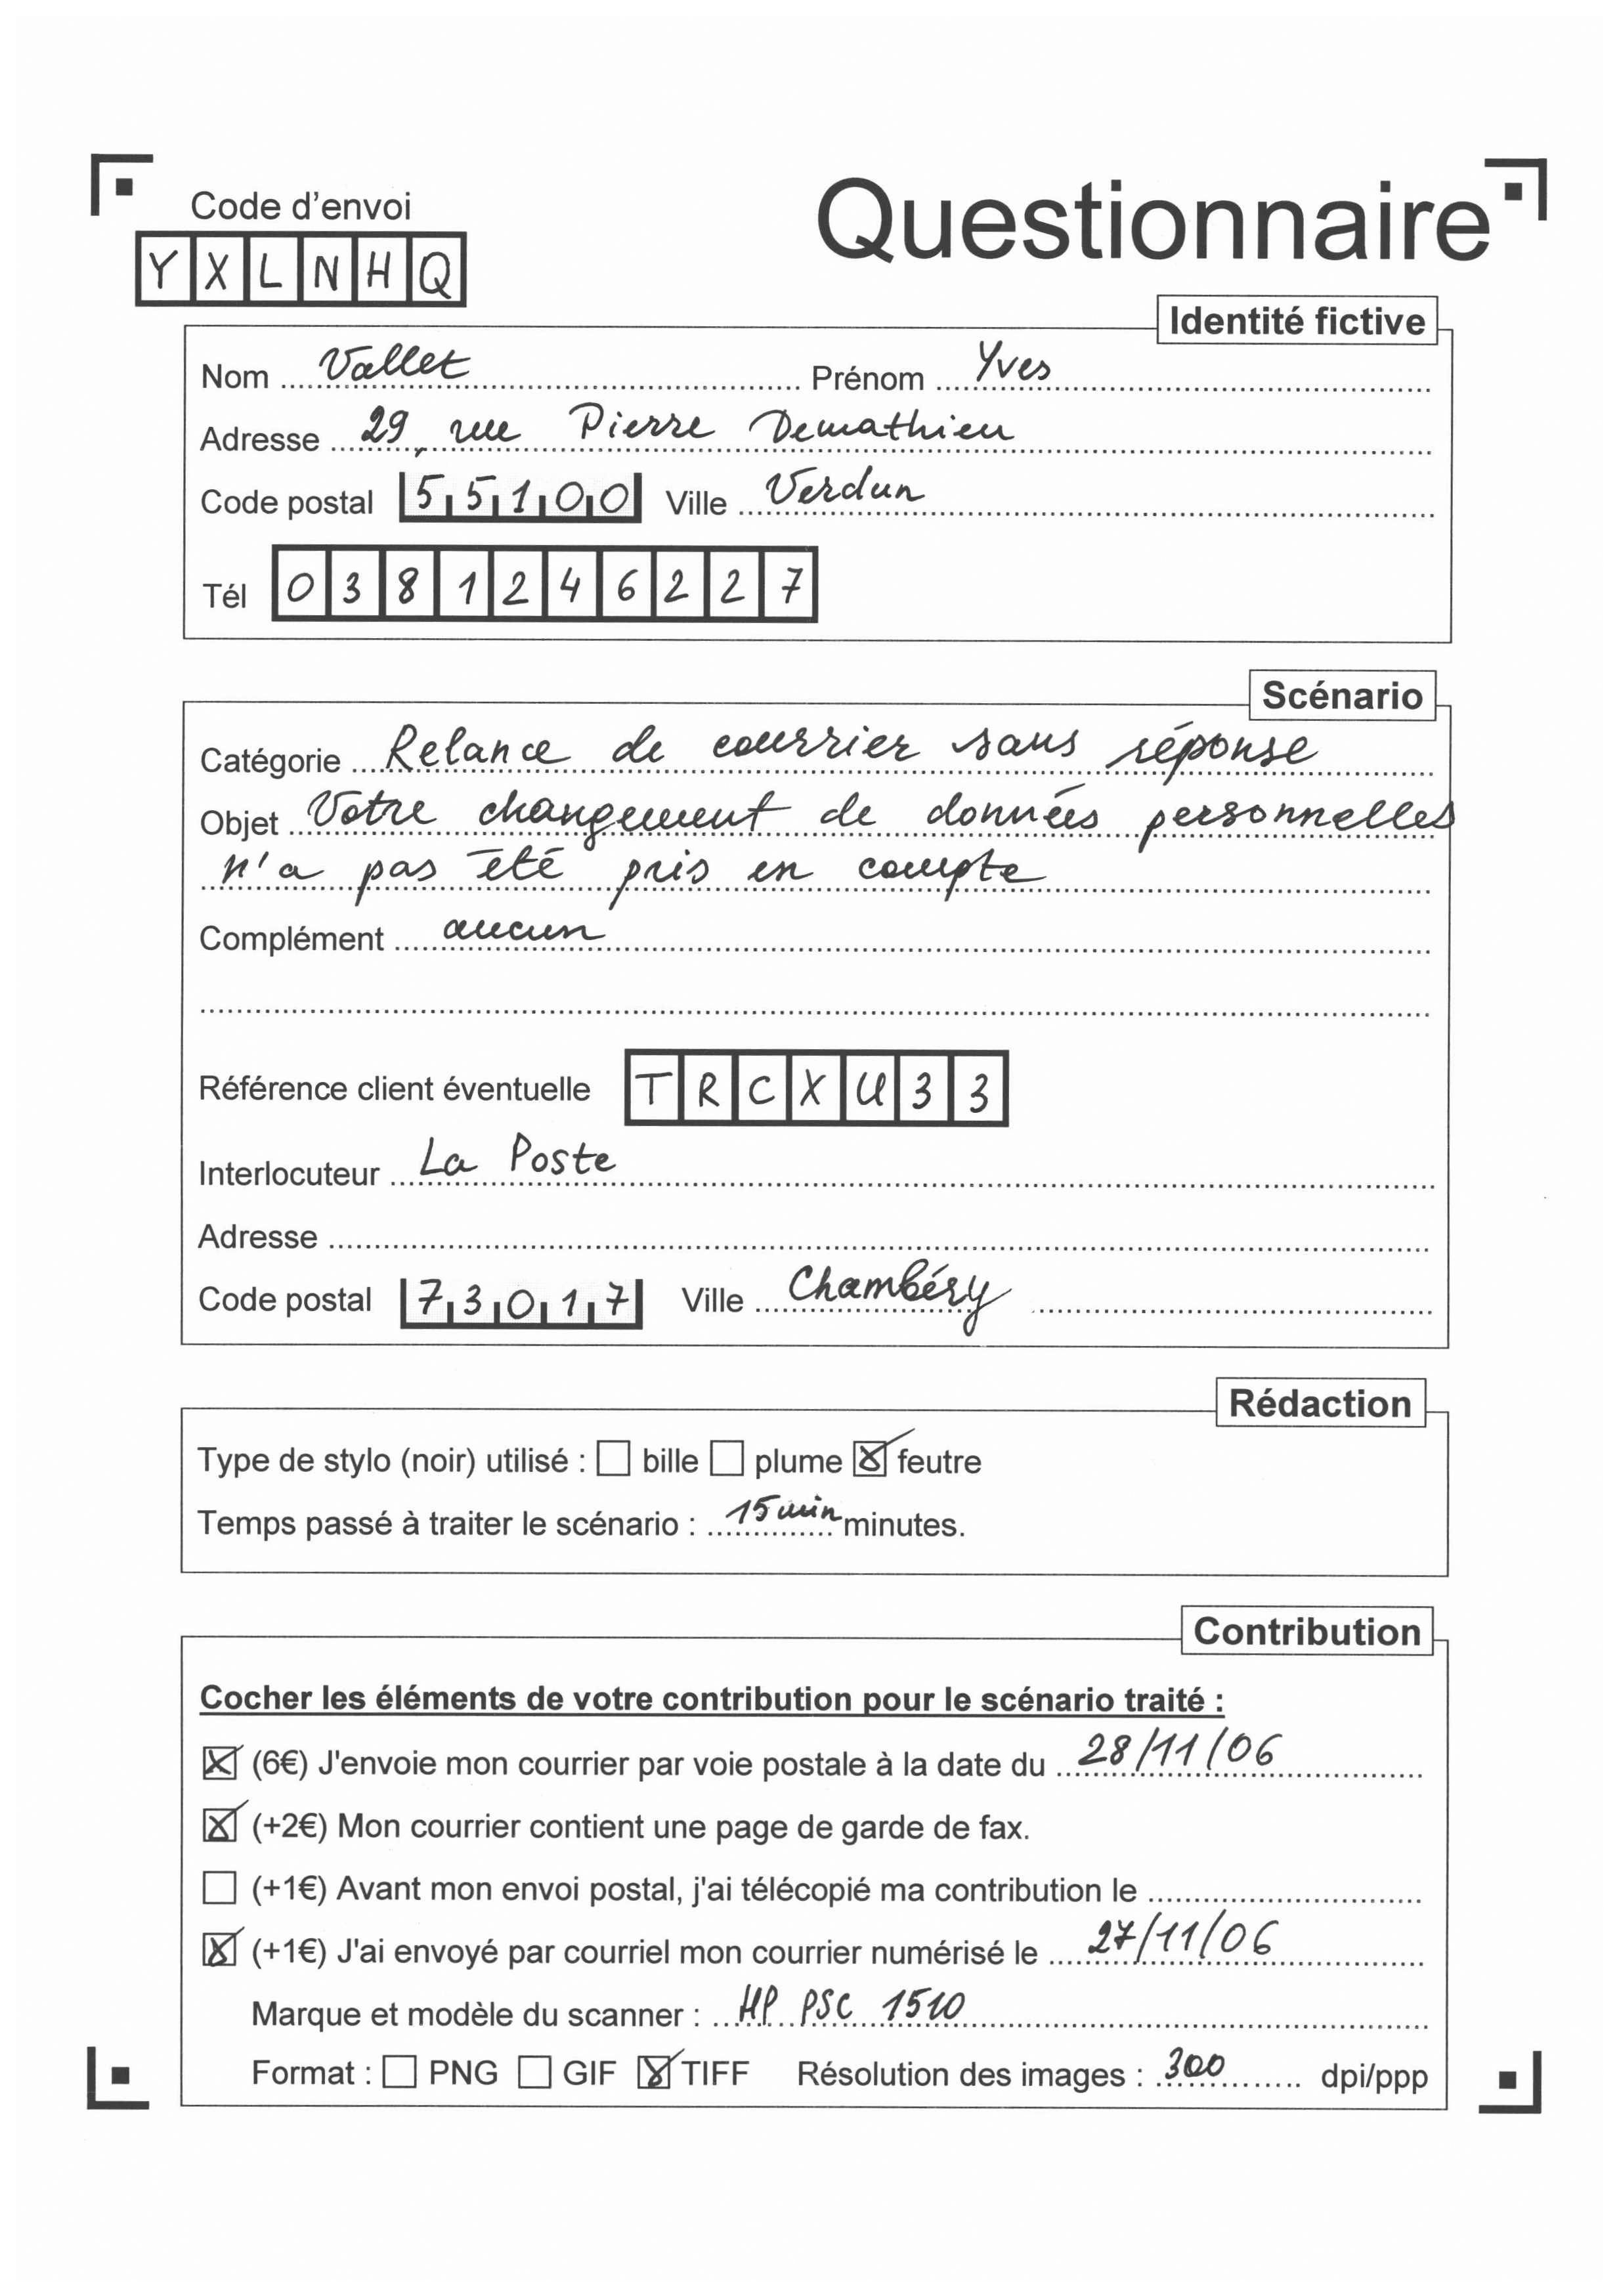 Code d'envoi
Questionnaire
Y X L N H Q
Identité fictive
Nom Vallet Prénom Yves
Adresse 29, rue Pierre Demathieu
Code postal 55100 Ville Verdun
Tél 0381246227
Scénario
Catégorie Relance de courrier sans réponse
Objet Votre changement de données personnelles
n'a pas été pris en compte
Complément aucun
Référence client éventuelle T R C X U 3 3
Interlocuteur La Poste
Adresse
Code postal 73017 Ville Chambéry
Rédaction
Type de stylo (noir) utilisé : ☐ bille ☐ plume ☒ feutre
Temps passé à traiter le scénario : 15 min minutes.
Contribution
Cocher les éléments de votre contribution pour le scénario traité :
☒ (6€) J'envoie mon courrier par voie postale à la date du 28/11/06
☒ (+2€) Mon courrier contient une page de garde de fax.
☐ (+1€) Avant mon envoi postal, j'ai télécopié ma contribution le
☒ (+1€) J'ai envoyé par courriel mon courrier numérisé le 27/11/06
Marque et modèle du scanner : HP PSC 1510
Format : ☐ PNG ☐ GIF ☒ TIFF Résolution des images : 300 dpi/ppp